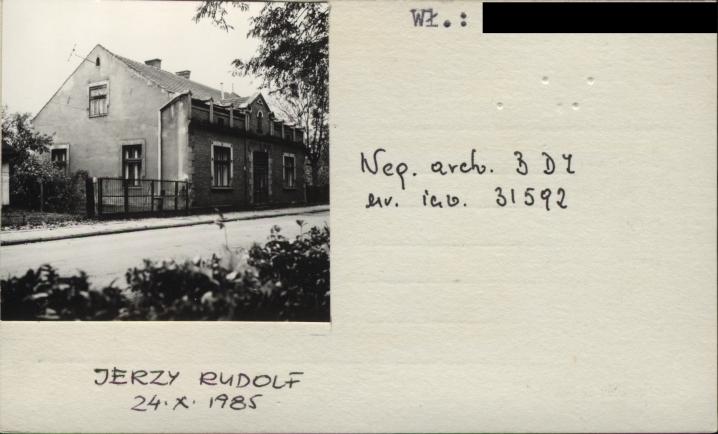 WŁ.:
Neg. arch. BDZ
nr. inw. 31592
JERZY RUDOLF
24.X.1985